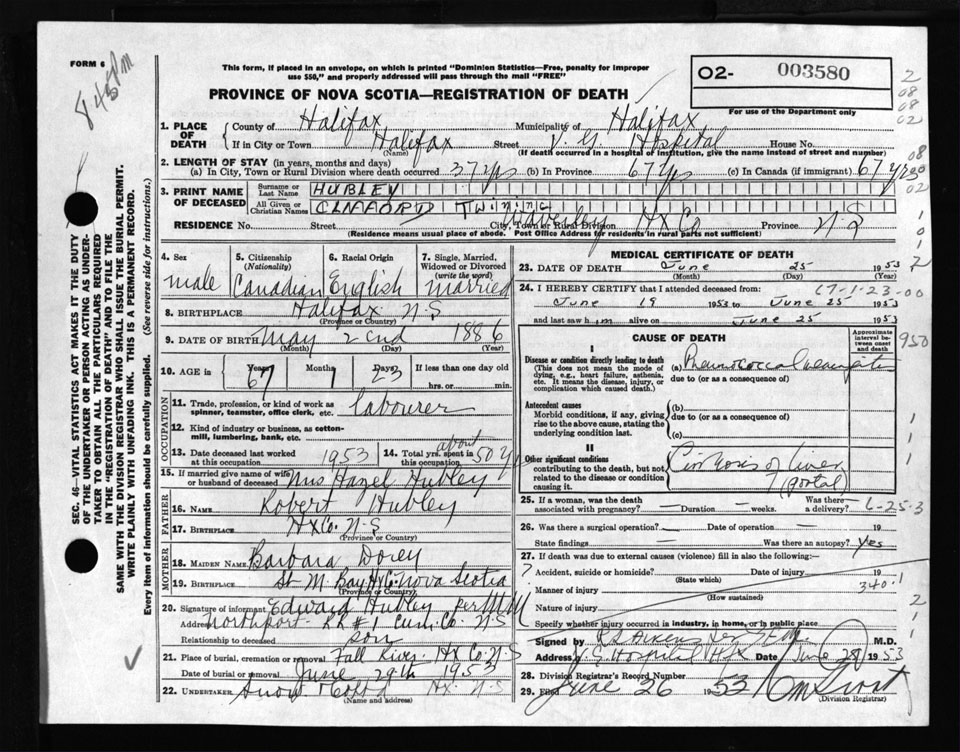 FORM 6
8 45 PM
This form, if placed in an envelope, on which is printed "Dominion Statistics—Free, penalty for improper
use $50," and properly addressed will pass through the mail "FREE"
O2- 003580
For use of the Department only
PROVINCE OF NOVA SCOTIA—REGISTRATION OF DEATH
1. PLACE OF DEATH { County of Halifax Municipality of Halifax
If in City or Town Halifax (Name) Street V. G. Hospital House No.
(If death occurred in a hospital or institution, give the name instead of street and number)
2. LENGTH OF STAY (in years, months and days)
(a) In City, Town or Rural Division where death occurred 37 yrs (b) In Province 67 yrs (c) In Canada (if immigrant) 67 yrs
3. PRINT NAME OF DECEASED { Surname or Last Name HUBLEY
All Given or Christian Names CLIFFORD TWINING
RESIDENCE No. Street Waverley City, Town or Rural Division Hx Co Province N S
(Residence means usual place of abode. Post Office Address for residents in rural parts not sufficient)
4. Sex male
5. Citizenship (Nationality) Canadian
6. Racial Origin English
7. Single, Married, Widowed or Divorced (write the word) married
8. BIRTHPLACE Halifax N S (Province or Country)
9. DATE OF BIRTH May (Month) 2nd (Day) 1886 (Year)
10. AGE in { Years 67 Months 1 Days 23 If less than one day old hrs. or min.
OCCUPATION
11. Trade, profession, or kind of work as spinner, teamster, office clerk, etc. labourer
12. Kind of industry or business, as cotton-mill, lumbering, bank, etc.
13. Date deceased last worked at this occupation 1953
14. Total yrs. spent in this occupation about 50 yrs
15. If married give name of wife or husband of deceased Mrs Hazel Hubley
FATHER
16. NAME Robert Hubley
17. BIRTHPLACE Hx Co. N-S (Province or Country)
MOTHER
18. MAIDEN NAME Barbara Dorey
19. BIRTHPLACE St M. Bay Hx Co. Nova Scotia (Province or Country)
20. Signature of informant Edward Hubley per
Address Northport RR #1 Cum. Co. N S
Relationship to deceased son
21. Place of burial, cremation or removal Fall River Hx Co. N S
Date of burial or removal June 29th 1953
22. UNDERTAKER Snow Hx. N S
(Name and address)
MEDICAL CERTIFICATE OF DEATH
23. DATE OF DEATH June (Month) 25 (Day) 1953 (Year)
24. I HEREBY CERTIFY that I attended deceased from: 67-1-23-00
June 19 1953 to June 25 1953
and last saw him alive on June 25 1953
CAUSE OF DEATH
Approximate interval between onset and death
I
Disease or condition directly leading to death
(This does not mean the mode of dying, e.g., heart failure, asthenia, etc. It means the disease, injury, or complication which caused death.)
(a)
due to (or as a consequence of)
Antecedent causes
Morbid conditions, if any, giving rise to the above cause, stating the underlying condition last.
(b)
due to (or as a consequence of)
(c)
II
Other significant conditions
contributing to the death, but not related to the disease or condition causing it.
Cirrhosis of liver
(portal)
25. If a woman, was the death associated with pregnancy? — Duration — weeks. Was there a delivery? 6-25-3
26. Was there a surgical operation? — Date of operation — 19
State findings — Was there an autopsy? Yes
27. If death was due to external causes (violence) fill in also the following:—
Accident, suicide or homicide? (State which) Date of injury 19
Manner of injury (How sustained) 340.1
Nature of injury
Specify whether injury occurred in industry, in home, or in public place
Signed by M.D.
Address V. G. Hospital Hfx Date June 1953
28. Division Registrar's Record Number
29. Filed June 26 1953
(Division Registrar)
SEC. 46—VITAL STATISTICS ACT MAKES IT THE DUTY
OF THE UNDERTAKER OR PERSON ACTING AS UNDER-
TAKER TO OBTAIN ALL THE PARTICULARS REQUIRED
IN THE "REGISTRATION OF DEATH" AND TO FILE THE
SAME WITH THE DIVISION REGISTRAR WHO SHALL ISSUE THE BURIAL PERMIT.
WRITE PLAINLY WITH UNFADING INK. THIS IS A PERMANENT RECORD.
Every item of information should be carefully supplied. (See reverse side for instructions.)
2
08
08
02
08
02
950